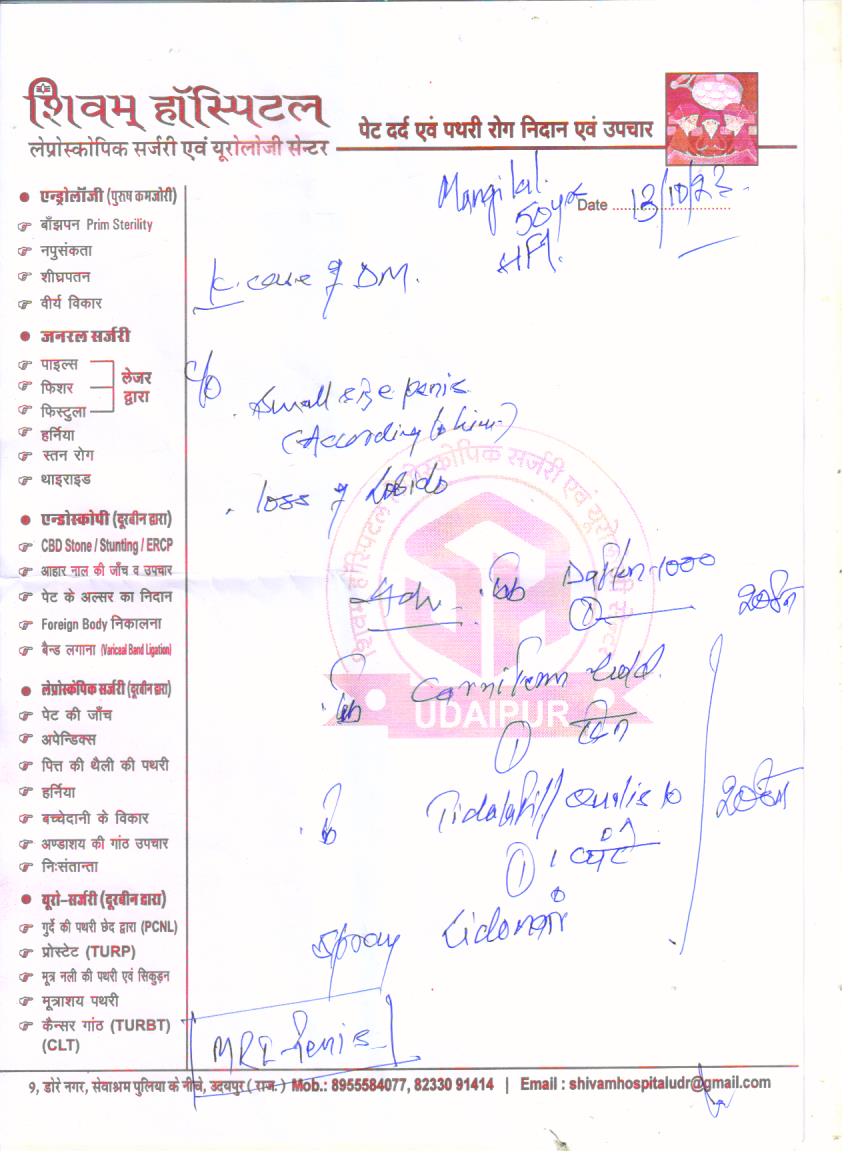 शिवम् हॉस्पिटल
लेप्रोस्कोपिक सर्जरी एवं यूरोलोजी सेन्टर
पेट दर्द एवं पथरी रोग निदान एवं उपचार
Mangilal.
50yrs
Date 13/10/23
K. case of DM.
c/o
. Small size penis
(According to him)
. loss of Libido
Adv
1000
20 दिन
1 दिन
20 दिन
1
Spray
MRI Penis
● एन्ड्रोलॉजी (पुरुष कमजोरी)
बाँझपन Prim Sterility
नपुसंकता
शीघ्रपतन
वीर्य विकार
● जनरल सर्जरी
पाइल्स
फिशर
फिस्टुला
लेजर
द्वारा
हर्निया
स्तन रोग
थाइराइड
● एन्डोस्कोपी (दूरबीन द्वारा)
CBD Stone / Stunting / ERCP
आहार नाल की जाँच व उपचार
पेट के अल्सर का निदान
Foreign Body निकालना
बैन्ड लगाना (Variceal Band Ligation)
● लेप्रोस्कोपिक सर्जरी (दूरबीन द्वारा)
पेट की जाँच
अपेन्डिक्स
पित्त की थैली की पथरी
हर्निया
बच्चेदानी के विकार
अण्डाशय की गांठ उपचार
निःसंतान्ता
● यूरो-सर्जरी (दूरबीन द्वारा)
गुर्दे की पथरी छेद द्वारा (PCNL)
प्रोस्टेट (TURP)
मूत्र नली की पथरी एवं सिकुड़न
मूत्राशय पथरी
कैन्सर गांठ (TURBT)
(CLT)
शिवम् हॉस्पिटल लेप्रोस्कोपिक सर्जरी एवं यूरोलोजी सेन्टर
UDAIPUR
9, डोरे नगर, सेवाश्रम पुलिया के नीचे, उदयपुर ( राज. ) Mob.: 8955584077, 82330 91414 | Email : shivamhospitaludr@gmail.com